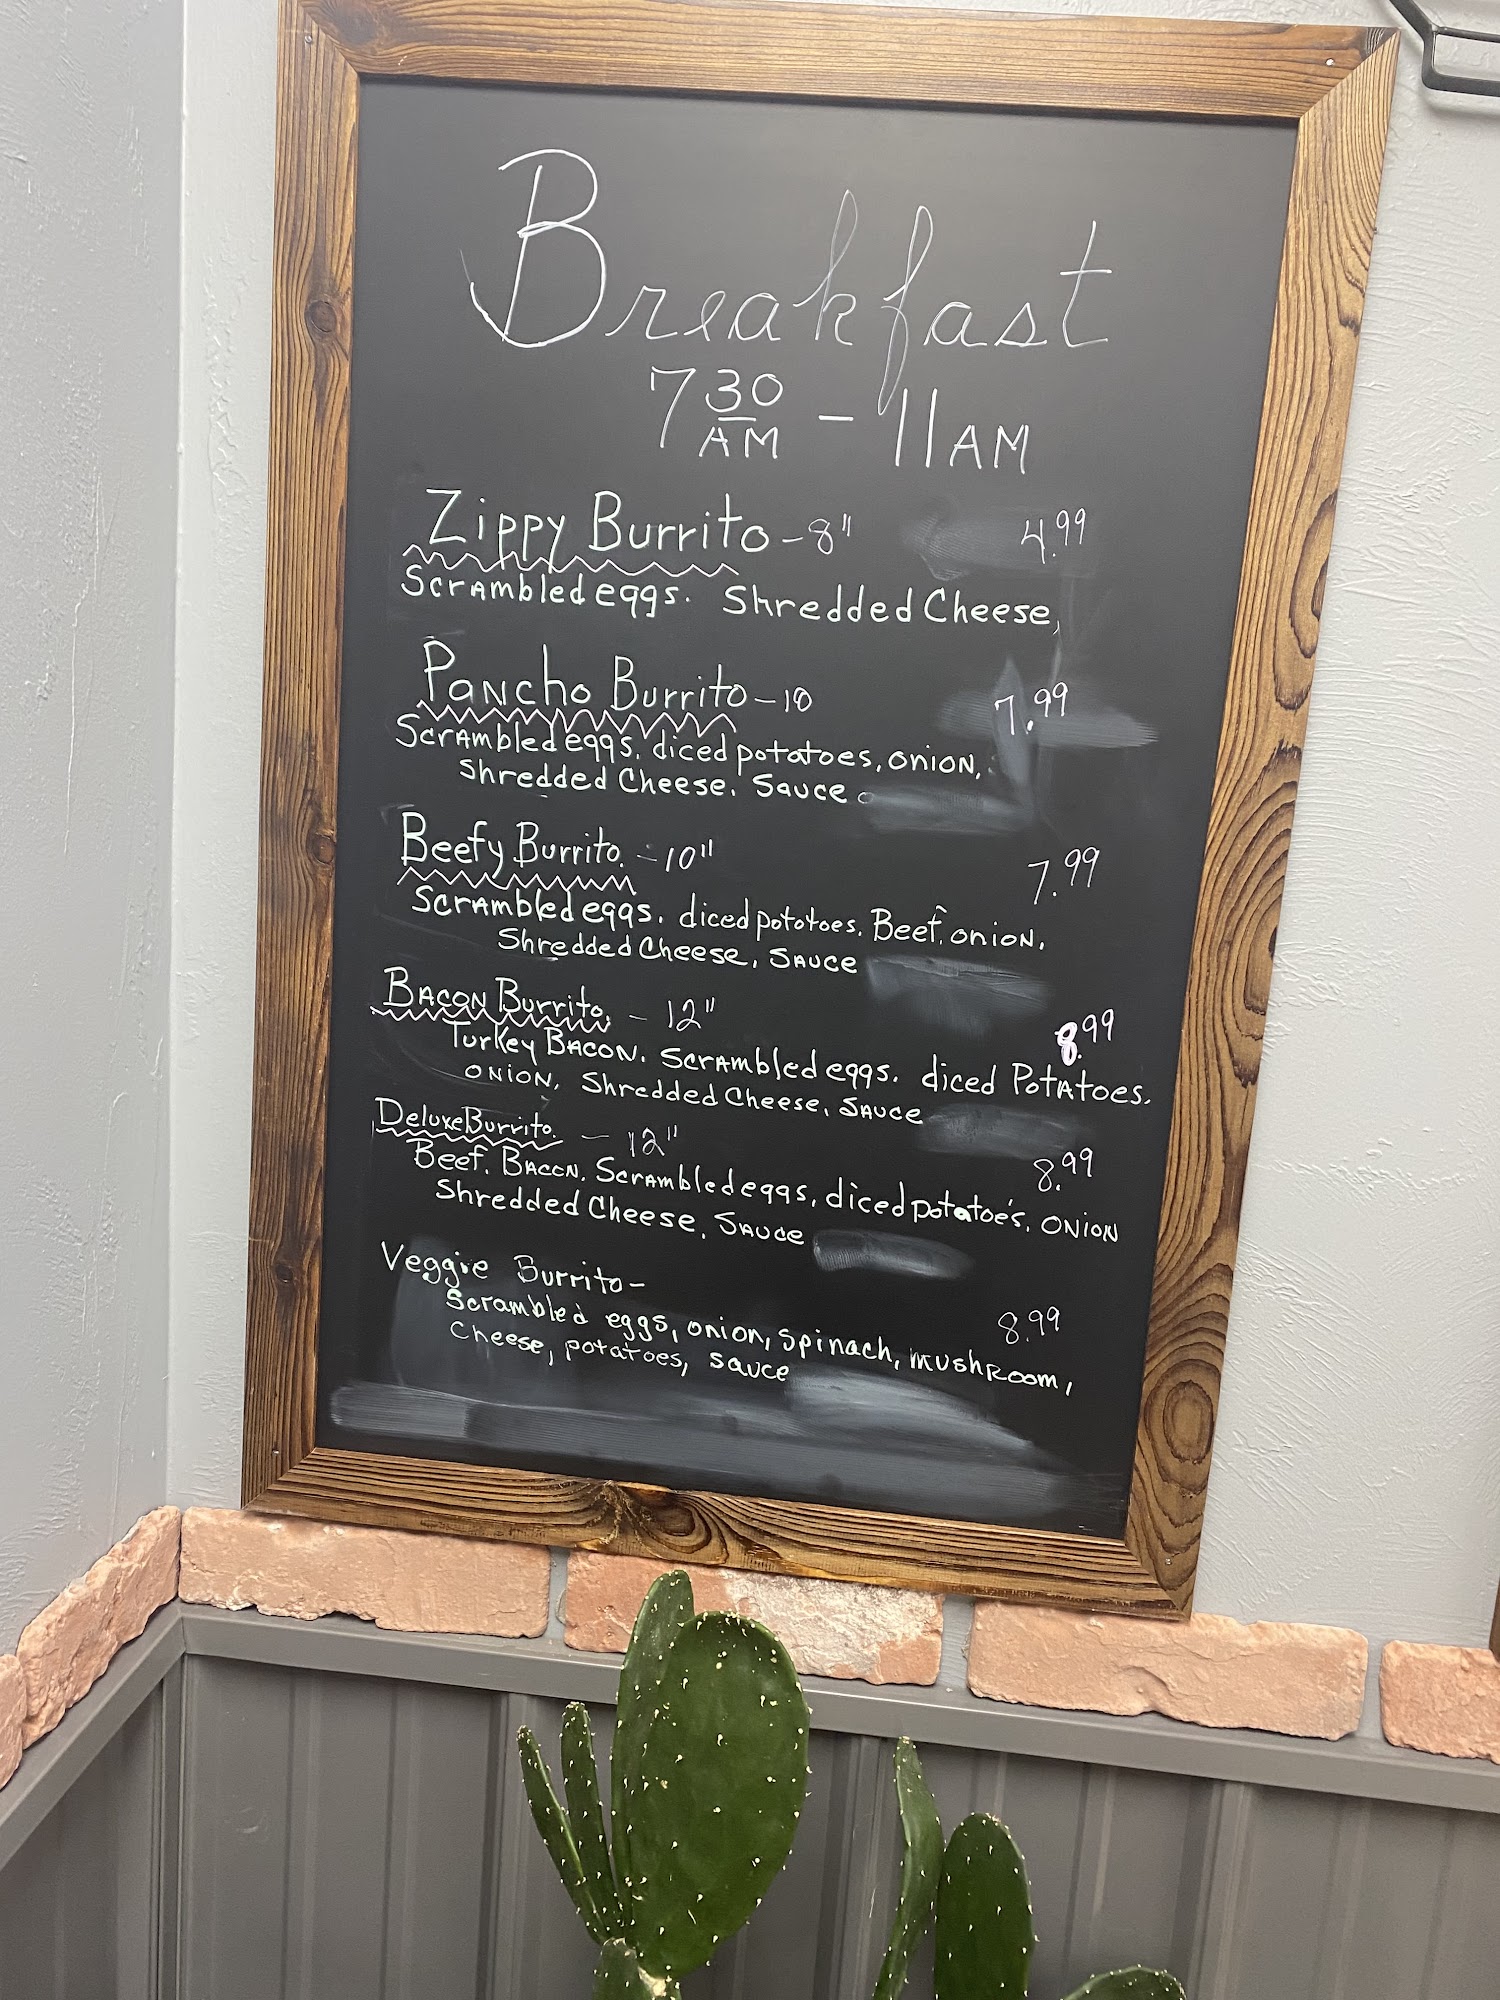 Breakfast
7 30 AM - 11 AM
Zippy Burrito - 8" 4.99
Scrambled eggs. Shredded Cheese,
Pancho Burrito - 10 7.99
Scrambled eggs. diced potatoes, onion,
Shredded Cheese. Sauce
Beefy Burrito. - 10" 7.99
Scrambled eggs. diced pototoes. Beef. onion.
Shredded Cheese, Sauce
Bacon Burrito, - 12" 8.99
Turkey Bacon. Scrambled eggs. diced Potatoes.
onion, Shredded Cheese, Sauce
Deluxe Burrito. - 12" 8.99
Beef. Bacon. Scrambled eggs, diced potatoe's. onion
Shredded Cheese, Sauce
Veggie Burrito - 8.99
Scrambled eggs, onion, spinach, mushroom,
cheese, potatoes, sauce